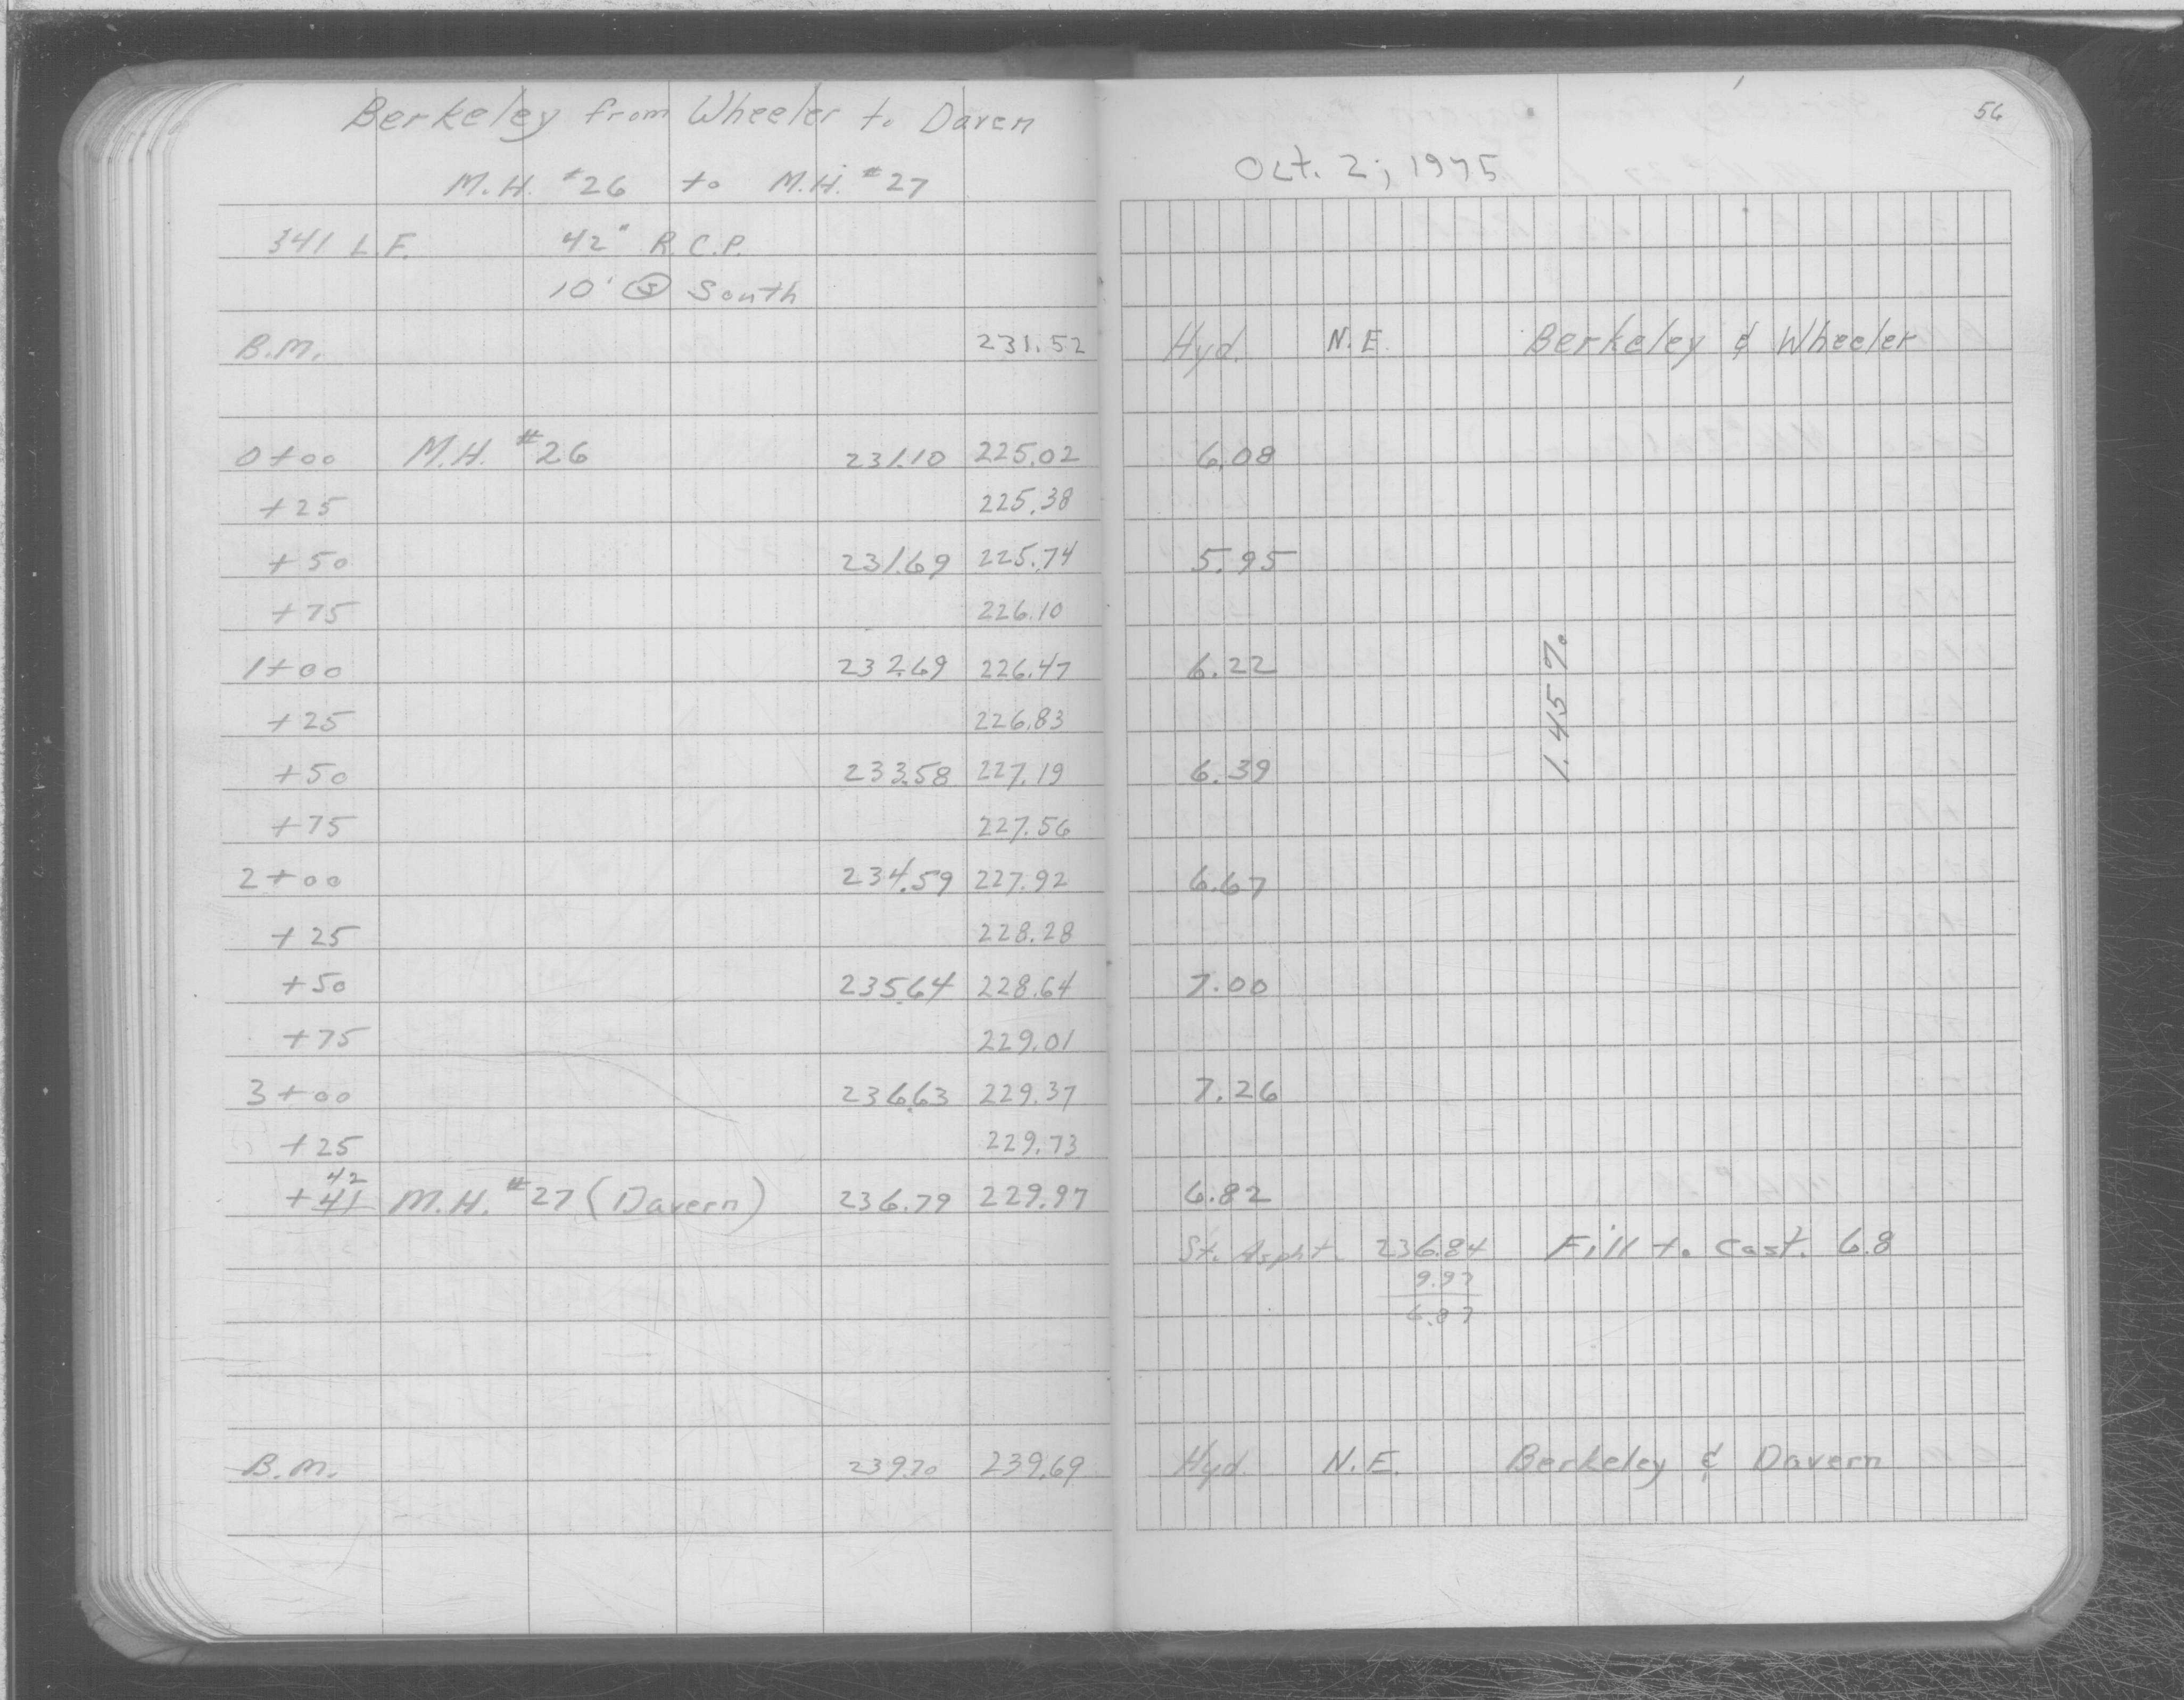 Berkeley from Wheeler to Daven
M.H. #26 to M.H. #27
341 L.F. 42" R.C.P.
10' S South
B.M. 231.52
0+00 M.H. #26 231.10 225.02
+25 225.38
+50 231.69 225.74
+75 226.10
1+00 232.69 226.47
+25 226.83
+50 233.58 227.19
+75 227.56
2+00 234.59 227.92
+25 228.28
+50 235.64 228.64
+75 229.01
3+00 236.63 229.37
+25 229.73
42
+41 M.H. #27 (Davern) 236.79 229.97
B.M. 239.70 239.69
56
Oct. 2, 1975
Hyd. N.E. Berkeley & Wheeler
6.08
5.95
6.22
1.45%
6.39
6.67
7.00
7.26
6.82
St. Aspht. 236.84 Fill to Cast. 6.8
9.97
6.87
Hyd. N.E. Berkeley & Davern